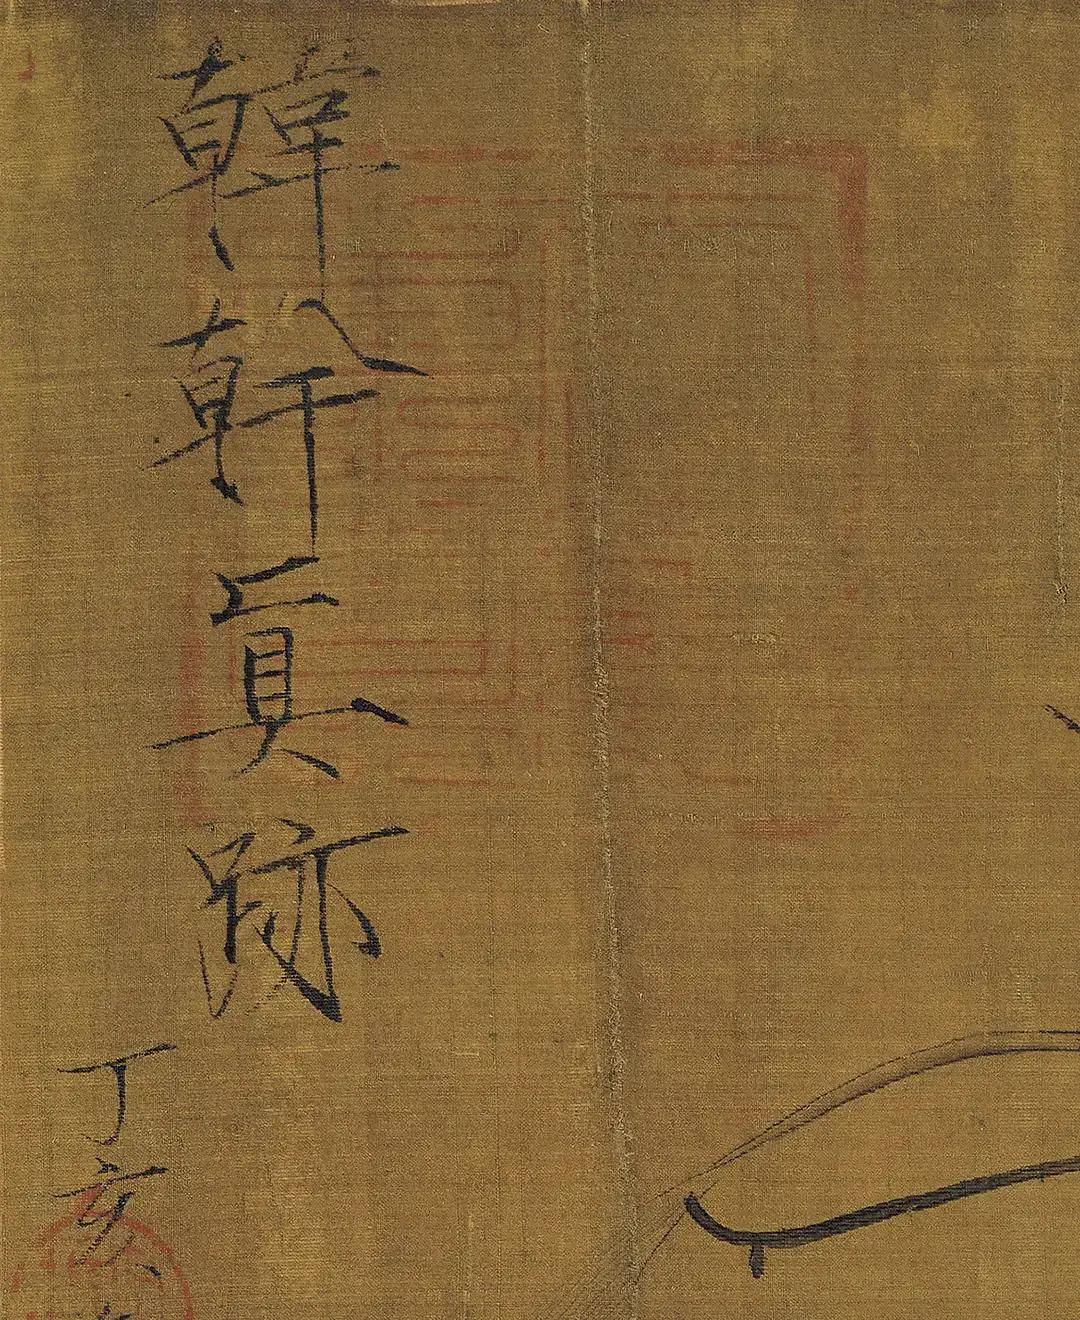 韓幹真跡
丁亥